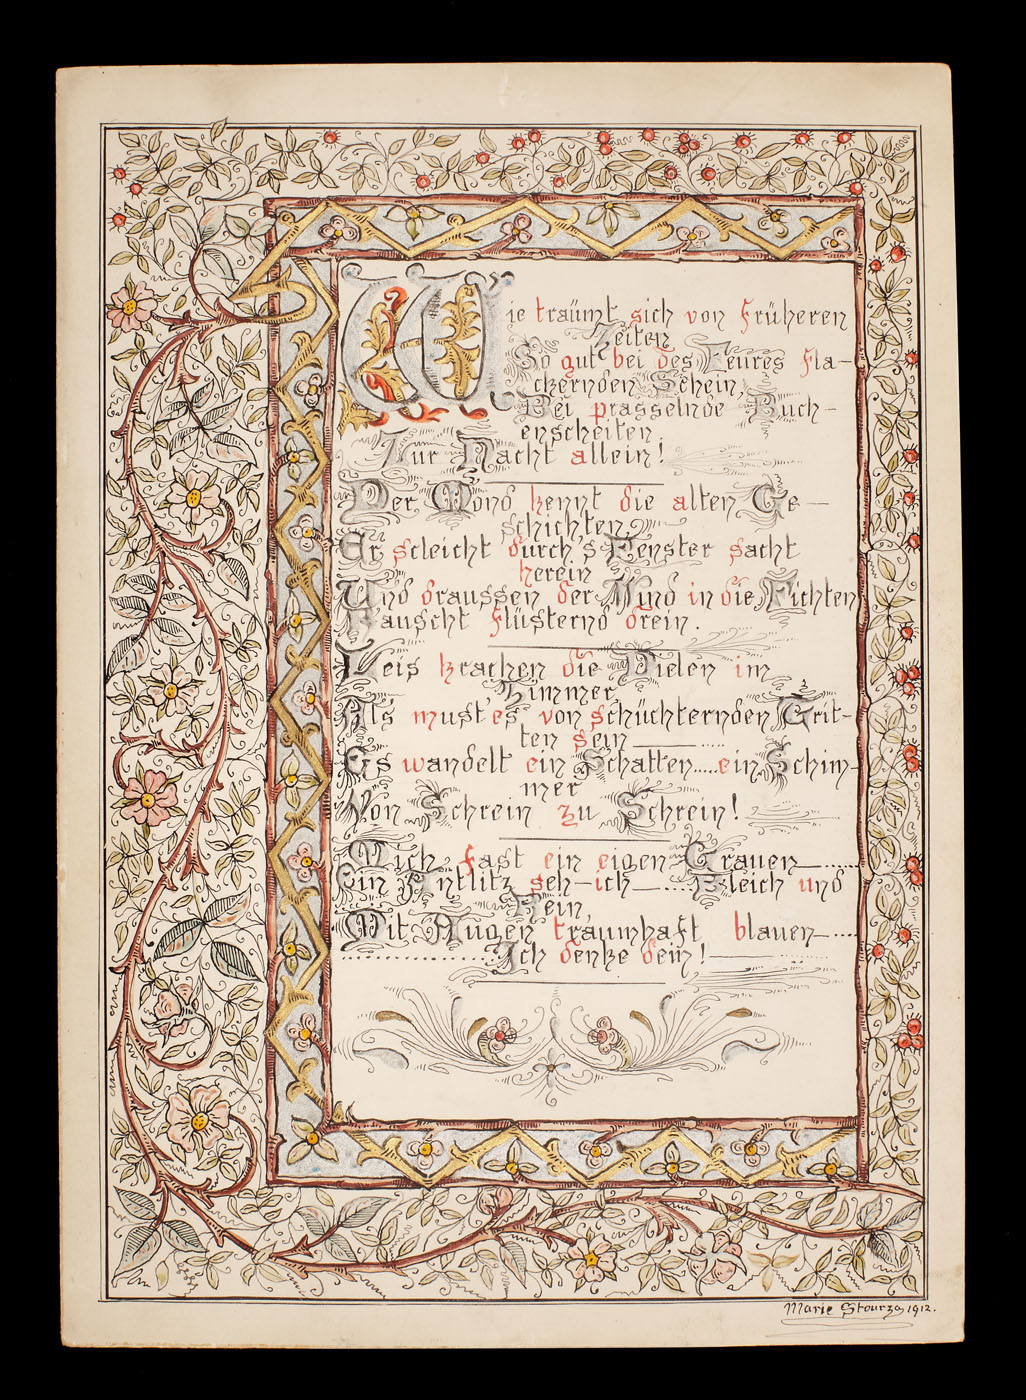 Wie träumt sich von früheren
Zeiten
So gut bei des Feures fla-
ckernden Schein,
Bei prasselnde Buch-
enscheiten,
Zur Nacht allein!
Der Mond kennt die alten Ge-
schichten,
Er scleicht durch's Fenster sacht
herein
Und draussen der Wind in die Fichten
Rauscht flüsternd drein.
Leis krachen die Dielen im
Zimmer
Als must'es von schüchternden Trit-
ten sein
Es wandelt ein Schatten.....ein Schim-
mer
Von Schrein zu Schrein!
Mich fast ein eigen Grauen
Ein Antlitz seh-ich-.... Bleich und
Rein,
Mit Augen traumhaft blauen-....
Ich denke dein!
Marie Stourza 1912.